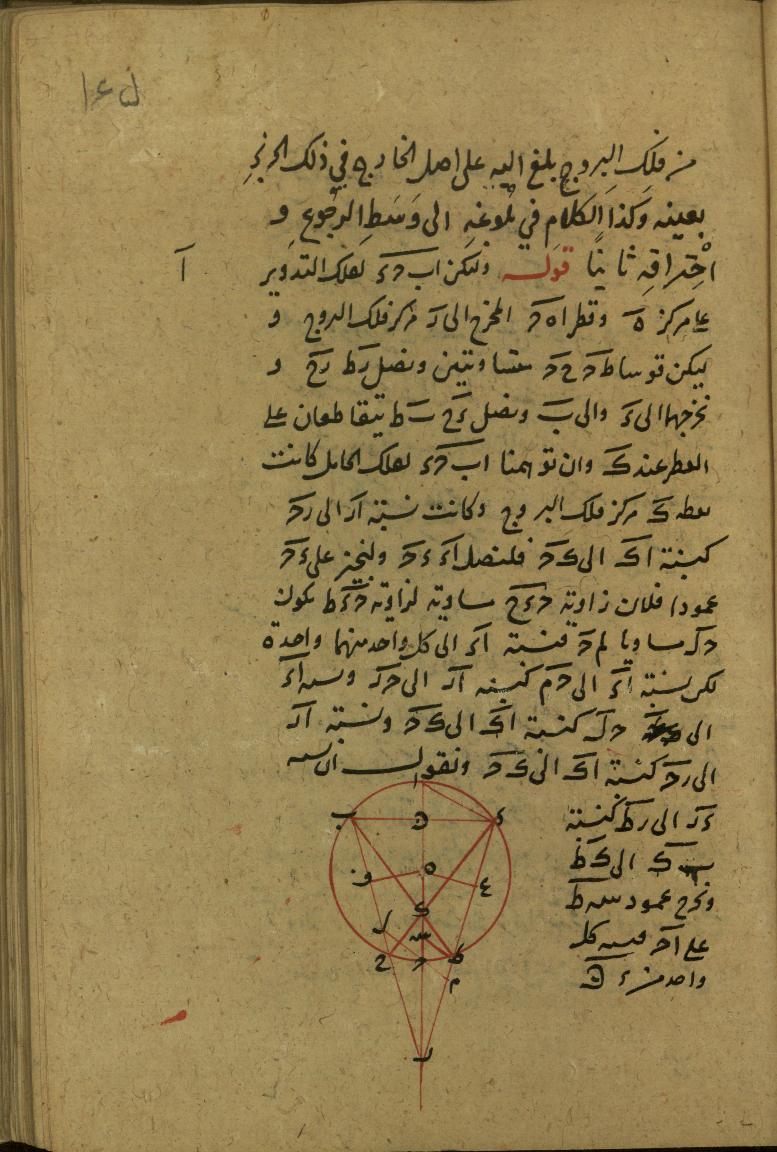 من فلك البروج بلغ اليه على اصل الخارج في ذلك الجزء
بعينه وكذا الكلام في بلوغه الى وسط الرجوع و
احتراقه ثانيا قوله وليكن اب حء لفلك التدوير
على مركز ه وقطر اه ح المخرج الى ر مركز فلك البروج و
ليكن قوسا ط ح ح ح متساويتين ونصل ر ط ر ح و
نخرجهما الى ء والى ب ونصل ء ح ب ط يتقاطعان على
القطر عند ك وان توهمنا اب حء لفلك الحامل كانت
نقطة ك مركز فلك البروج وكانت نسبة ار الى ر ح
كنسبة اك الى ك ح فلنصل اء ء ح ولنجز على ح
عمودا فلان زاوية ح ء ح مساوية لزاوية ح ء ط يكون
ح ل مساويا لم ح فنسبة اء الى كل واحد منهما واحدة
لكن نسبة اء الى ح م كنسبة ار الى ح ر ونسبة اء
الى ح ل كنسبة اك الى ك ح ونسبة ار
الى ر ح كنسبة اك الى ك ح ونقول ان نسبة
ء ر الى ر ط كنسبة
ب ك الى ك ط
ونخرج عمود س ط
على ا ح فنسبة كل
واحد من ء ن
ا
ب ن ء
ه
ف ع
ك
ل س
ح ح ط
م
ر